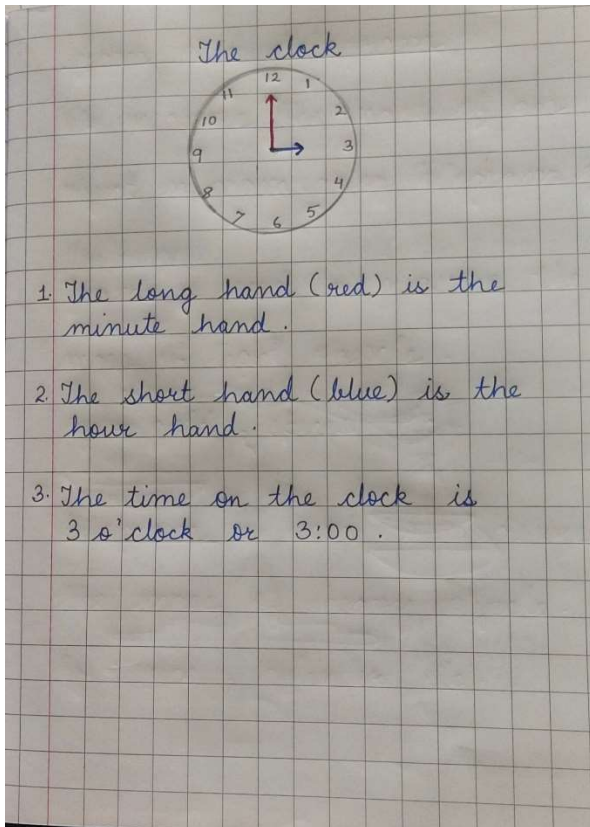 The clock
12
1
2
3
4
5
6
7
8
9
10
11
1. The long hand (red) is the
minute hand.
2. The short hand (blue) is the
hour hand.
3. The time on the clock is
3 o'clock or 3:00.